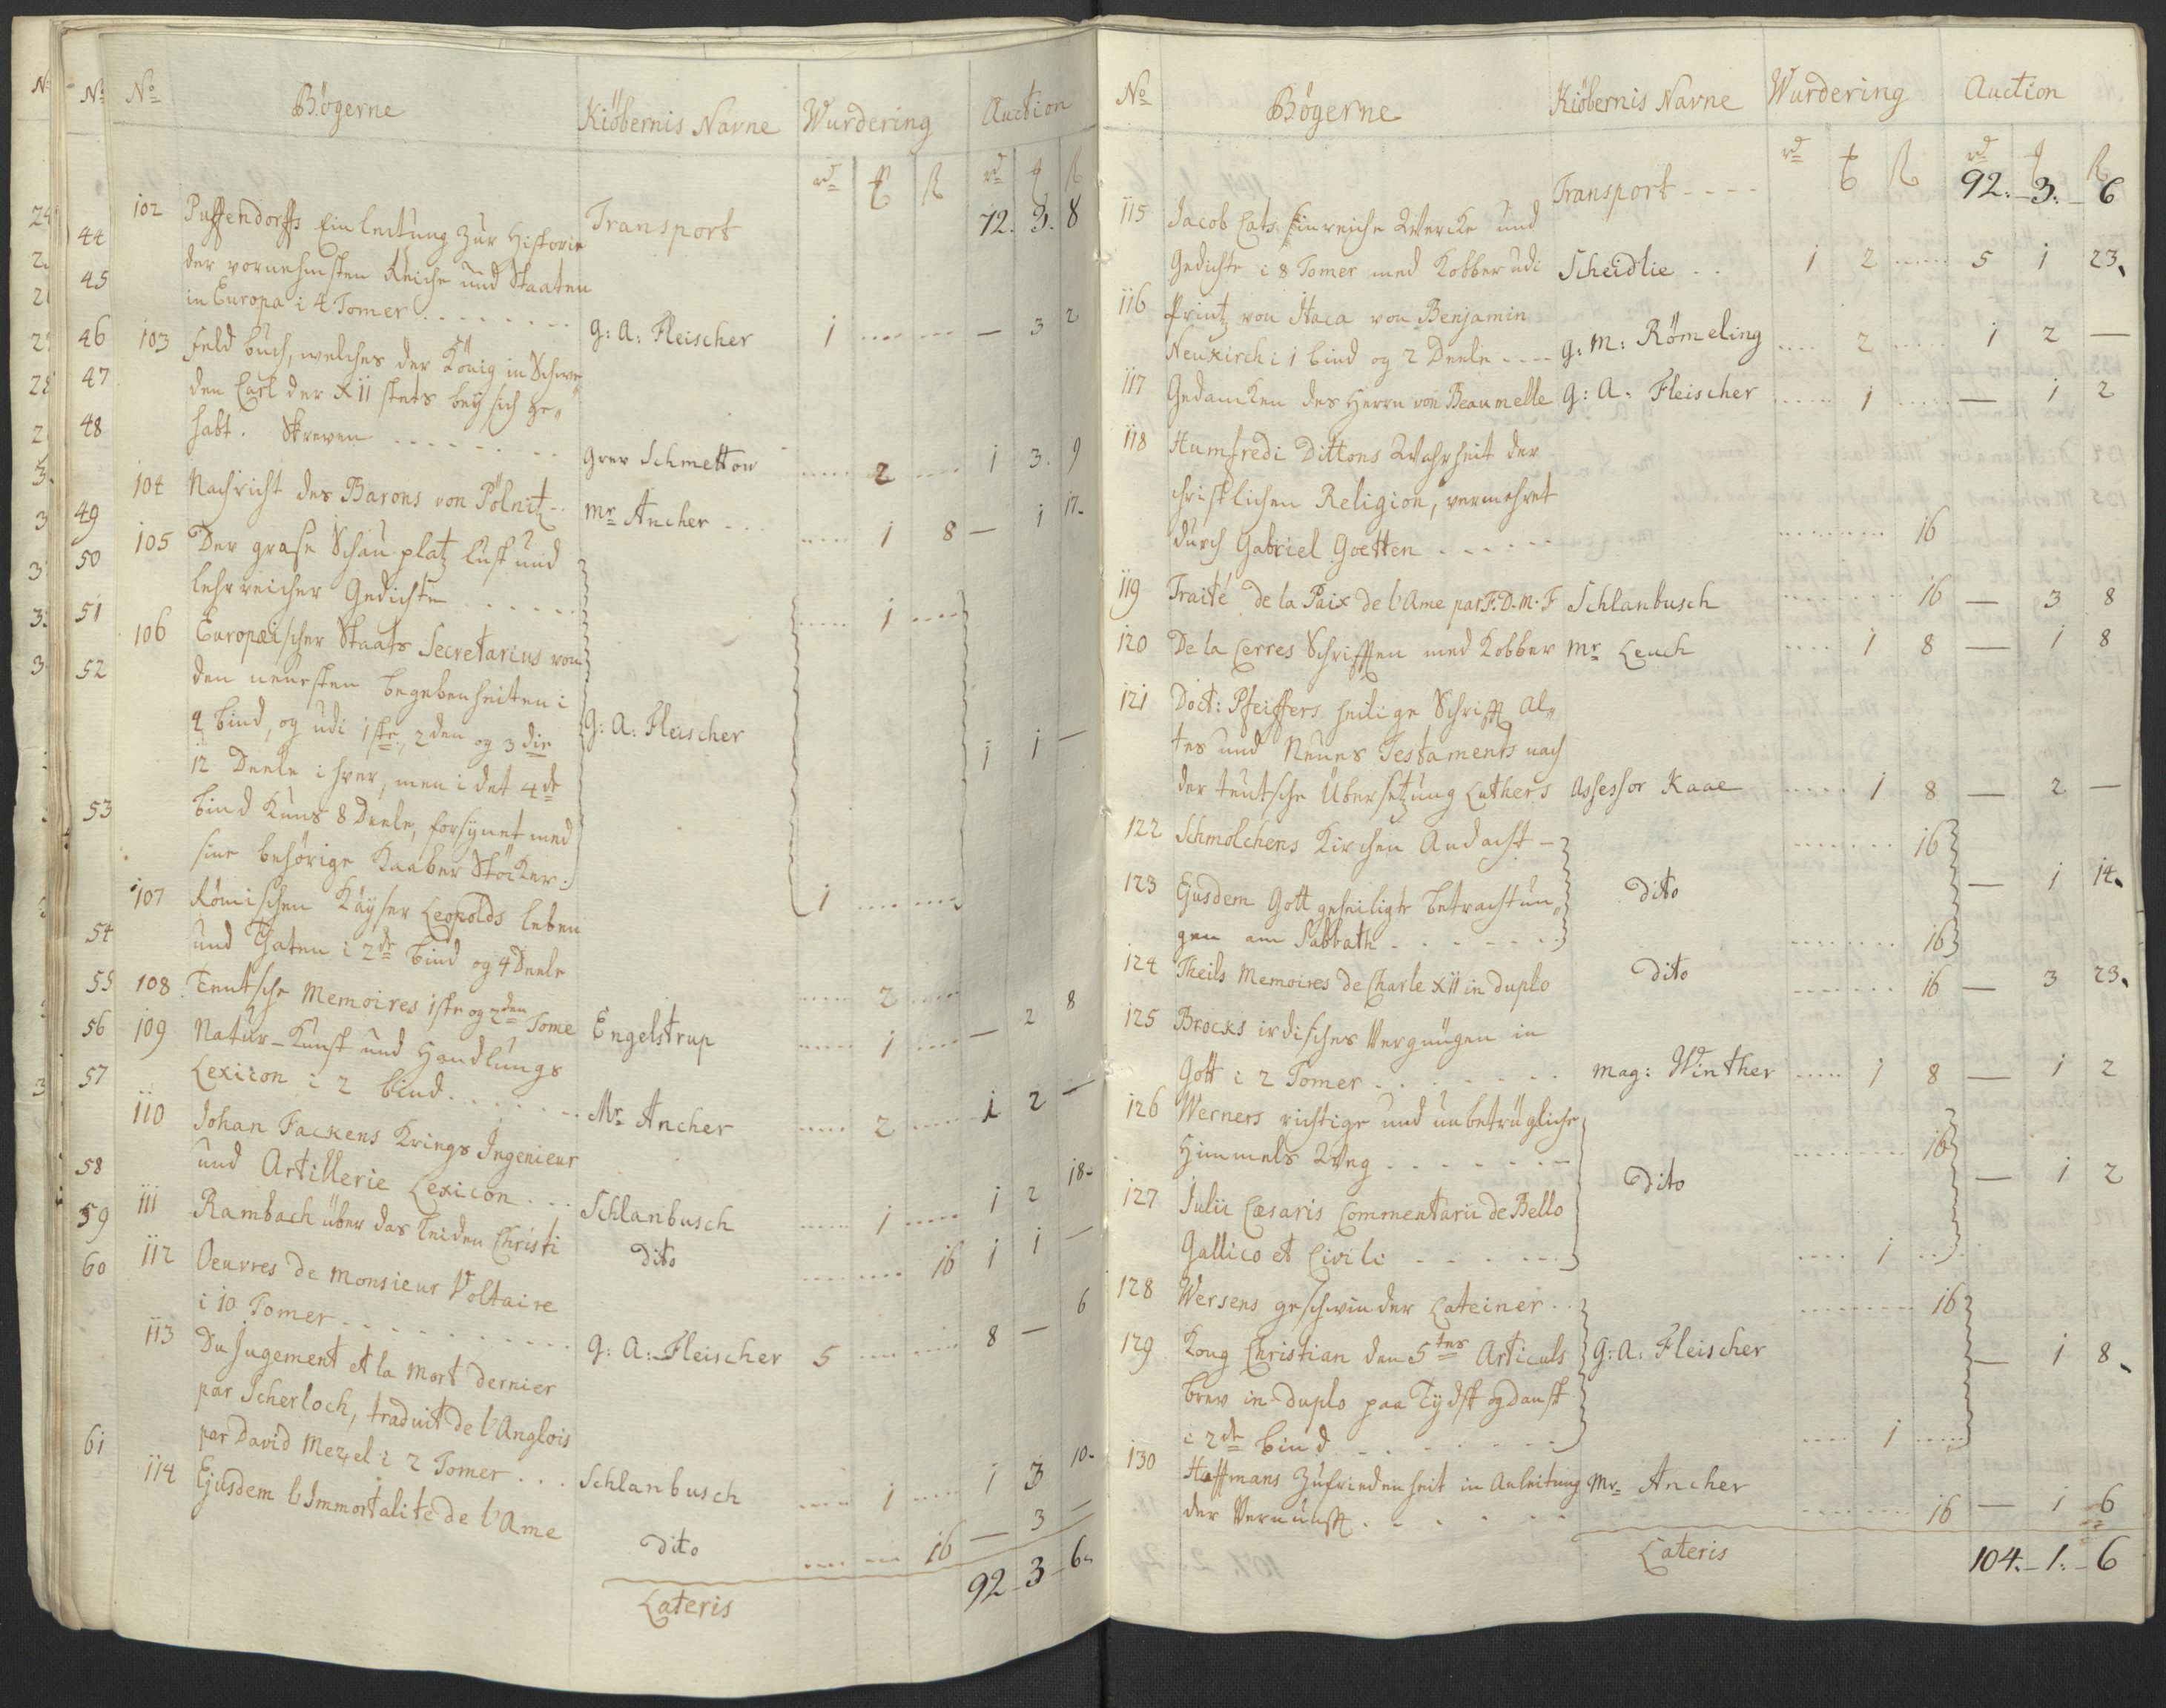 No Bögerne Kiöbernis Navne Wurdering Auction
rd rd
Transport 72. 3. 8
102 Puffendorffs Einleitung zur Historie
der vornehmsten Reiche und Staaten
in Europa i 4 Tomer . . . . . . . . G: A: Fleischer 1 ..... ..... — 3 2
103 Feld buch, welches der König in Schwe
den Carl der XII stets beÿ sich ge„
habt. Skreven . . . . . . . Grev Schmettow ..... 2 ..... 1 3. 9
104 Nachricht des Barons von Pölnitz - . Mr Ancher . . . ..... 1 8 — 1 17.
105 Der grose Schau platz lust und
lehrreicher Gedichte . . . . . . ..... 1 .....
106 Europæischer Staats Secretarius von
den neuesten begebenheiten i
4 bind, og udi 1ste, 2den og 3die G: A: Fleischer 1 1 —
12 Deele i hver, men i det 4de
bind kuns 8 Deele, forsynet med
sine behörige Kaaber Stöcker.
107 Römischen Käÿser Leopolds leben 1 ..... .....
und Thaten i 2de bind og 4 Deele ..... 2 .....
108 Teutsche Memoires 1ste og 2den Tome Engelstrup ..... 1 ..... — 2 8
109 Natur-Kunst und Handlungs
Lexicon i 2 bind . . . . . . . Mr Ancher ..... 2 ..... 1 2 —
110 Johan Fackens Krings Ingenieur
und Artillerie Lexicon . . . Schlanbusch ..... 1 ..... 1 2 18.
111 Rambach über das leiden Christi dito ..... ..... 16 1 1 —
112 Oeuvres de Monsieur Voltaire
i 10 Tomer . . . . . . . . . . G: A: Fleischer 5 ..... ..... 8 — 6
113 Du Jugement et la Mort dernier
par Scherloch, traduit de l'Anglois
par David Mezel i 2 Tomer . . . Schlanbusch ..... 1 ..... 1 3 10.
114 Ejusdem l'Immortalite de l'Ame dito ..... ..... 16 — 3 —
Lateris 92 - 3 - 6.
No Bögerne Kiöbernis Navne Wurdering Auction
rd rd
Transport - - - - 92. - 3. - 6
115 Jacob Cats Sinreiche Wercke und
Gedichte i 8 Tomer med Kobber udi Scheidlie . . 1 2 ..... 5 1 23.
116 Printz von Itaca von Benjamin
Neukirch i 1 bind og 2 Deele . . . . G: M: Römeling .... 2 ..... 1 2 —
117 Gedancken des Herrn von Beaumelle G: A: Fleischer ..... 1 ..... — 1 2
118 Humfredi Dittons Wahrheit der
christlichen Religion, vermehret
durch Gabriel Goetten . . . . . ........ 16
119 Traité de la Paix de l'Ame par F. D. M. F Schlanbusch ........ 16 — 3 8
120 De la Cerres Schrifften med Kobber Mr Leuch .... 1 8 — 1 8
121 Doct: Pfeiffers heilige Schrifft Al„
tes und Neues Testaments nach
der teutsche Übersetzung Luthers Assessor Kaae ..... 1 8 — 2 —
122 Schmolchens Kirchen Andacht - ....... 16
123 Ejusdem Gott geheiligte betrachtun„ dito — 1 14.
gen am Sabbath . . . . . . . ........ 16
124 Theils Memoires de Charle XII in duplo dito ....... 16 — 3 23.
125 Brocks irdisches Vergnügen in
Gott i 2 Tomer . . . . . . . Mag: Winther ..... 1 8 — 1 2
126 Werners richtige und unbetrügliche
Himmels Weg . . . . . . . ........ 16
dito — 1 2
127 Julii Cæsaris Commentarii de Bello
Gallico et Civili . . . . . . .... 1 ..
128 Wersens geschwinder Lateiner . . ........ 16
129 Kong Christian den 5tes Articuls G: A: Fleischer — 1 8.
brev in duplo paa Tydsk og dansk
i 2de bind . . . . . . . .... 1 .....
130 Hoffmans Zufriedenheit in Anleitung Mr Ancher
der Vernunfft . . . . . . ....... 16 — 1 6
Lateris 104. - 1. - 6
44
45
46
47
48
49
50
51
52
53
54
55
56
57
58
59
60
61